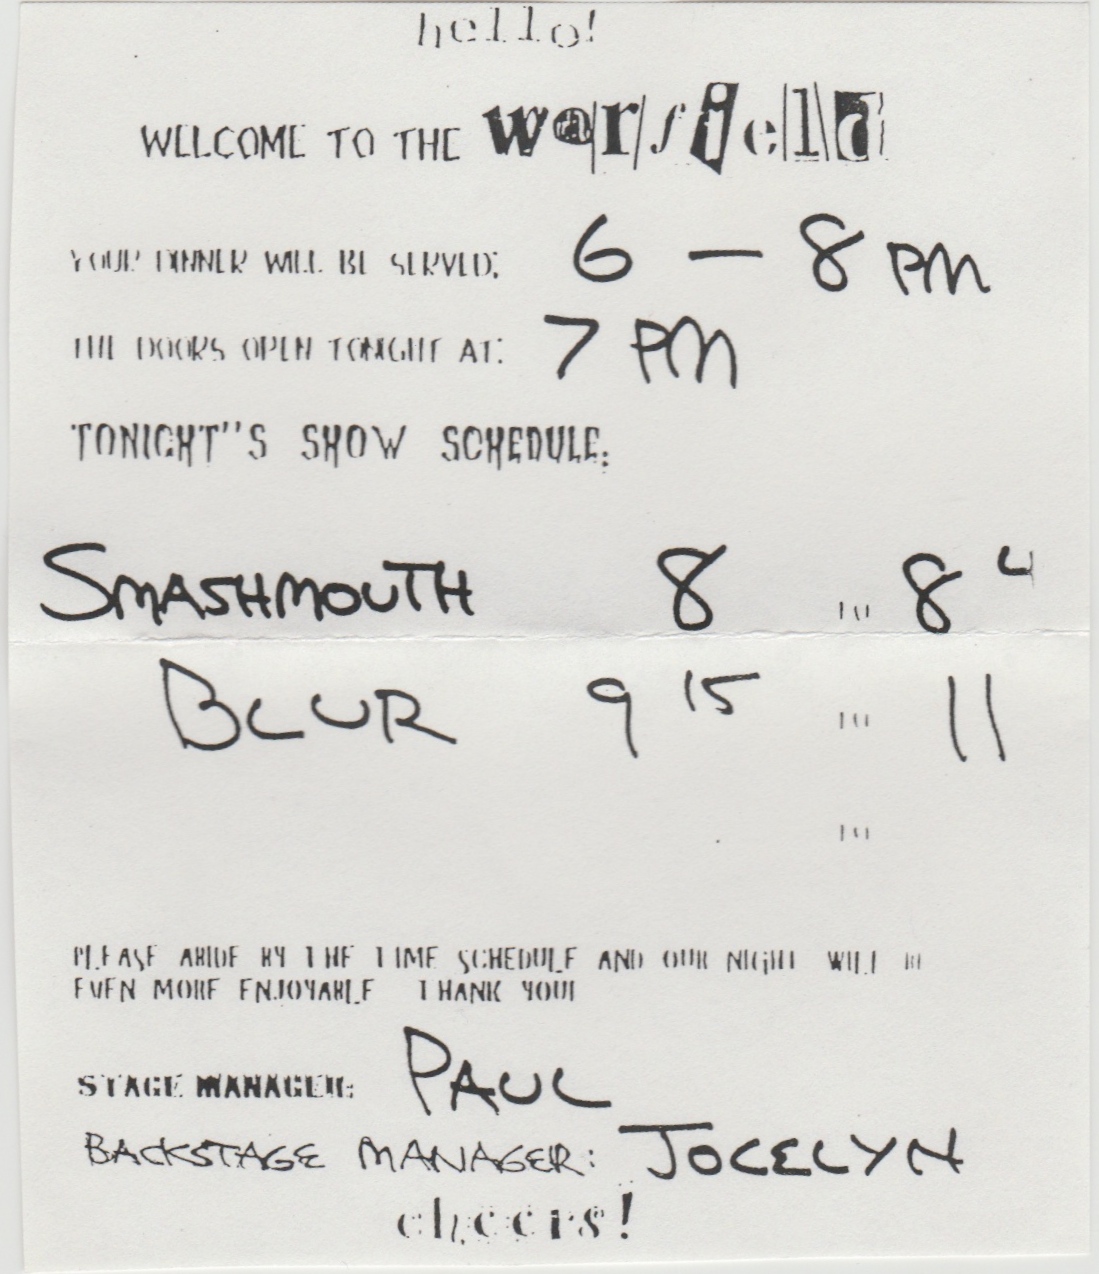 hello!
WELCOME TO THE warsield
YOUR DINNER WILL BE SERVED: 6 — 8 PM
THE DOORS OPEN TONIGHT AT: 7 PM
TONIGHT''S SHOW SCHEDULE:
SMASHMOUTH 8 TO 8 4
BLUR 9 15 TO 11
TO
PLEASE ABIDE BY THE TIME SCHEDULE AND OUR NIGHT WILL BE
EVEN MORE ENJOYABLE THANK YOU!
STAGE MANAGER: PAUL
BACKSTAGE MANAGER: JOCELYN
cheers!